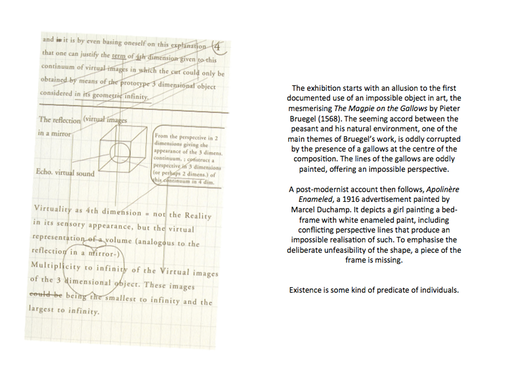 and in it is by even basing oneself on this explanation 4
that one can justify the term of 4th dimension given to this
continuum of virtual images in which the cut could only be
obtained by means of the prototype 3 dimensional object
considered in its geometric infinity.
The reflection (virtual images
in a mirror
Echo. virtual sound
From the perspective in 2
dimensions giving the
appearance of the 3 dimens.
continuum, construct a
perspective in 3 dimensions
(or perhaps 2 dimens.) of
this continuum in 4 dim.
Virtuality as 4th dimension = not the Reality
in its sensory appearance, but the virtual
representation of a volume (analogous to the
reflection in a mirror.)
Multiplicity to infinity of the Virtual images
of the 3 dimensional object. These images
could be being the smallest to infinity and the
largest to infinity.
The exhibition starts with an allusion to the first
documented use of an impossible object in art, the
mesmerising The Magpie on the Gallows by Pieter
Bruegel (1568). The seeming accord between the
peasant and his natural environment, one of the
main themes of Bruegel's work, is oddly corrupted
by the presence of a gallows at the centre of the
composition. The lines of the gallows are oddly
painted, offering an impossible perspective.
A post-modernist account then follows, Apolinère
Enameled, a 1916 advertisement painted by
Marcel Duchamp. It depicts a girl painting a bed-
frame with white enameled paint, including
conflicting perspective lines that produce an
impossible realisation of such. To emphasise the
deliberate unfeasibility of the shape, a piece of the
frame is missing.
Existence is some kind of predicate of individuals.